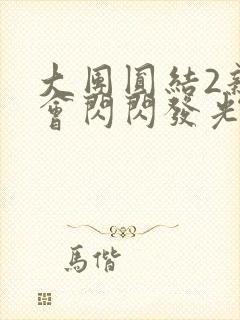 大團圓結2
會閃閃發光
馬偕